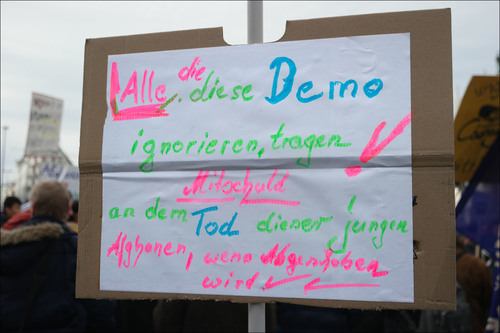 ! Alle, die diese Demo
ignorieren, tragen !
Mitschuld
an dem Tod dieser jungen
Afghanen, wenn Abgeschoben
wird!